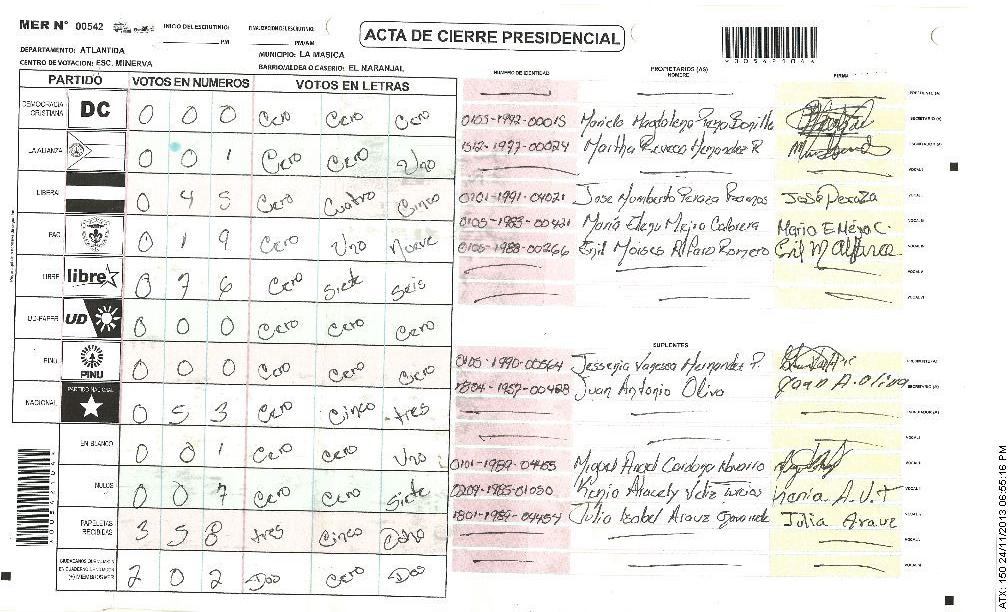 MER N° 00542 INICIO DEL ESCRUTINIO: FINALIZACION DEL ESCRUTINIO:
PM PM/AM
ACTA DE CIERRE PRESIDENCIAL
DEPARTAMENTO: ATLANTIDA MUNICIPIO: LA MASICA
CENTRO DE VOTACION: ESC. MINERVA BARRIO/ALDEA O CASERIO: EL NARANJAL
PARTIDO VOTOS EN NUMEROS VOTOS EN LETRAS
NUMERO DE IDENTIDAD PROPIETARIOS (AS) NOMBRE FIRMA
DEMOCRACIA CRISTIANA DC 0 0 0 Cero Cero Cero
LA ALIANZA 0 0 1 Cero Cero Uno
LIBERAL 0 4 5 Cero Cuatro Cinco
PAC 0 1 9 Cero Uno Nueve
LIBRE libre 0 7 6 Cero Siete Seis
UD-FAPER UD 0 0 0 Cero Cero Cero
PINU PINU 0 0 0 Cero Cero Cero
NACIONAL PARTIDO NACIONAL 0 5 3 Cero Cinco tres
EN BLANCO 0 0 1 Cero Cero Uno
NULOS 0 0 7 Cero Cero Siete
PAPELETAS RECIBIDAS 3 5 8 tres Cinco Ocho
2 0 2 Dos Cero Dos
PRESIDENTE (A)
0105-1992-00015 Mariela Magdalena Bonilla SECRETARIO (A)
1512-1977-00024 Martha Hernandez R ESCRUTADOR (A)
VOCAL I
0101-1991-04021 Jose Humberto Peraza Ramos José Peraza VOCAL II
0105-1983-00421 María Elena Mejia Cabrera Maria E. Mejia C. VOCAL III
0105-1988-00266 Enil Moises Alfaro Romero Enil M Alfaro VOCAL IV
VOCAL V
VOCAL VI
SUPLENTES
0105-1990-00564 Jessenia Vanessa Hernandez P. PRESIDENTE (A)
1804-1957-00428 Juan Antonio Oliva Juan A. oliva SECRETARIO (A)
ESCRUTADOR (A)
VOCAL I
0101-1989-04165 Miguel Angel Cardona Navarro VOCAL II
0209-1985-01050 Kenia Aracely Veliz Turcios Kenia A.V.T VOCAL III
1801-1989-04454 Julia Isabel Arauz Julia Arauz VOCAL IV
VOCAL V
VOCAL VI
ATX: 150 24/11/2013 06:55:16 PM